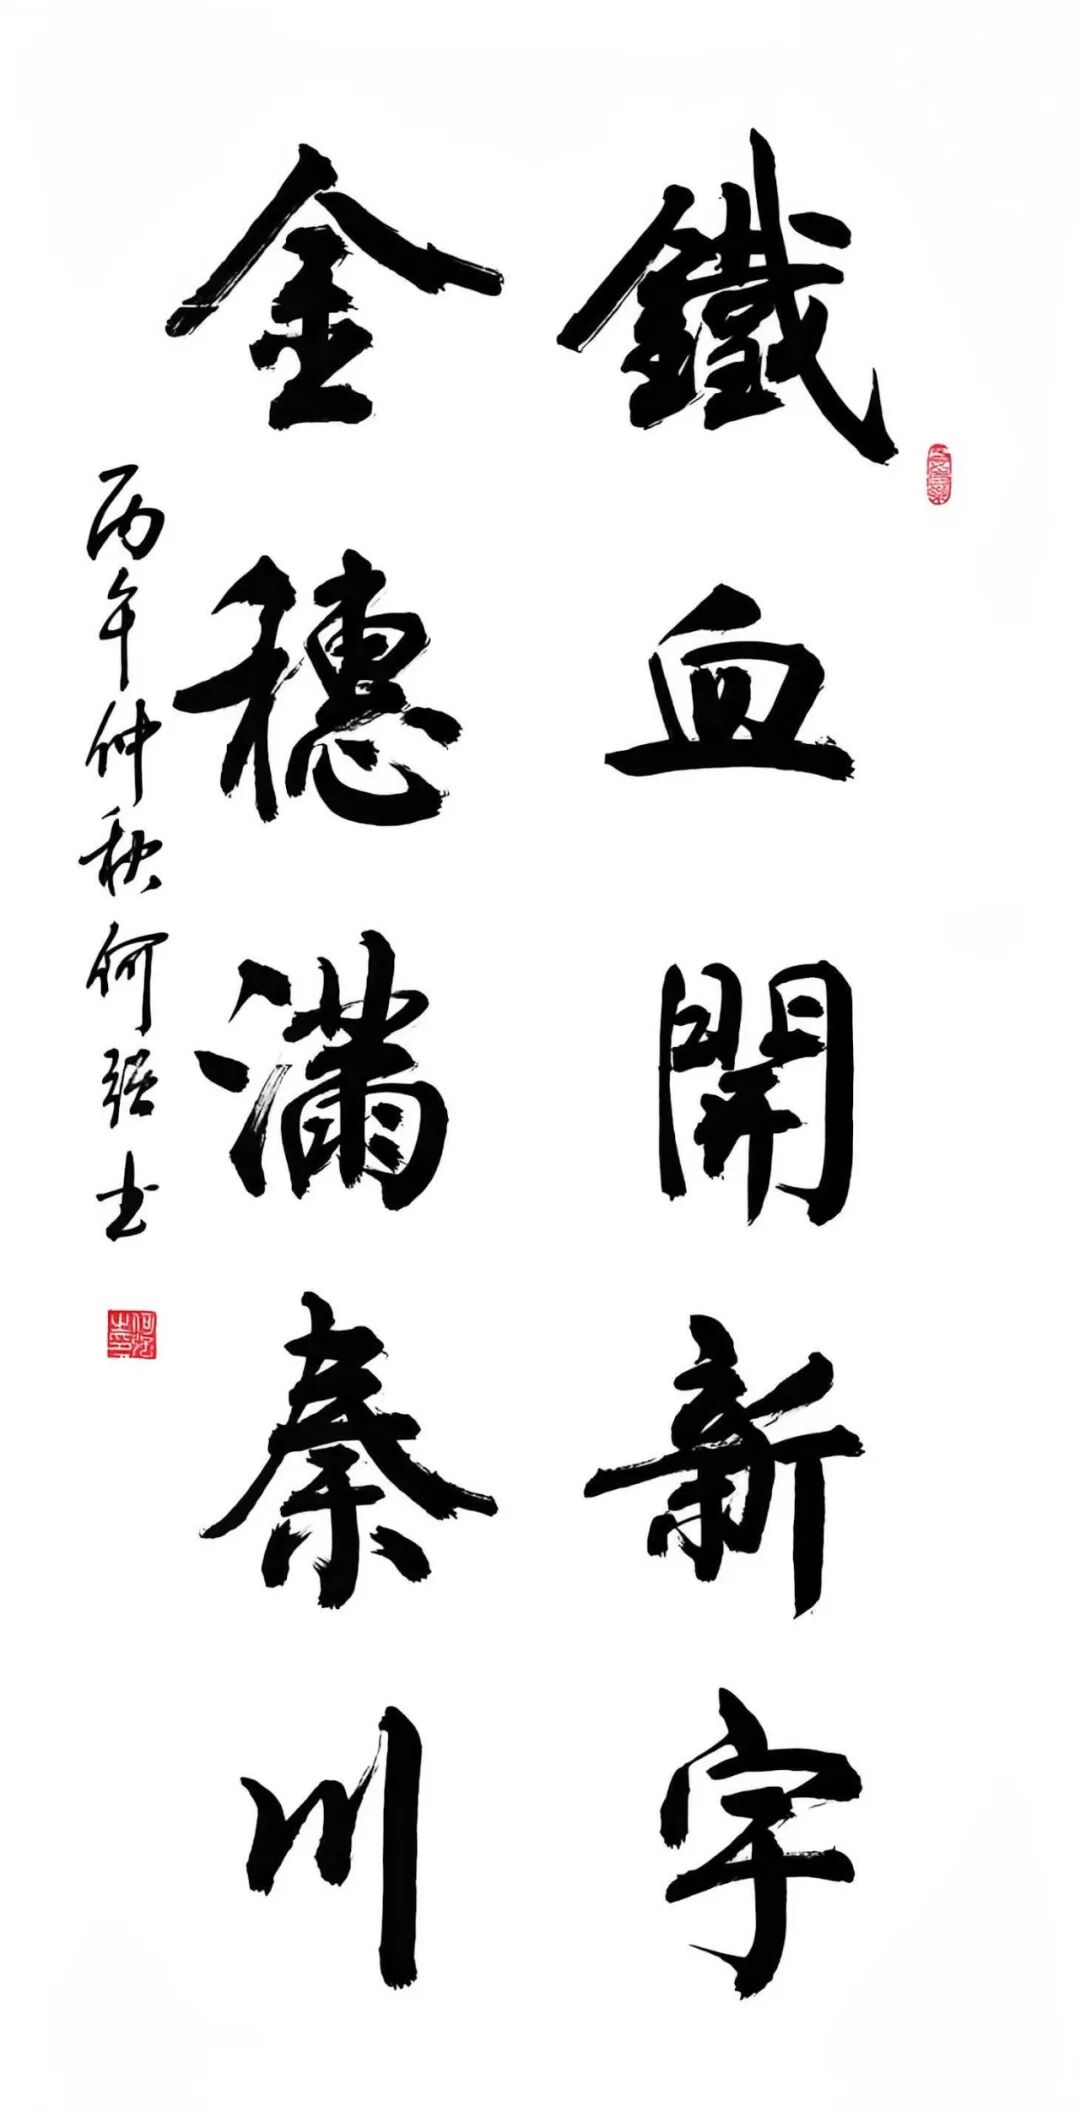 鐵血開新宇
金穗滿秦川
丙午仲秋何强书